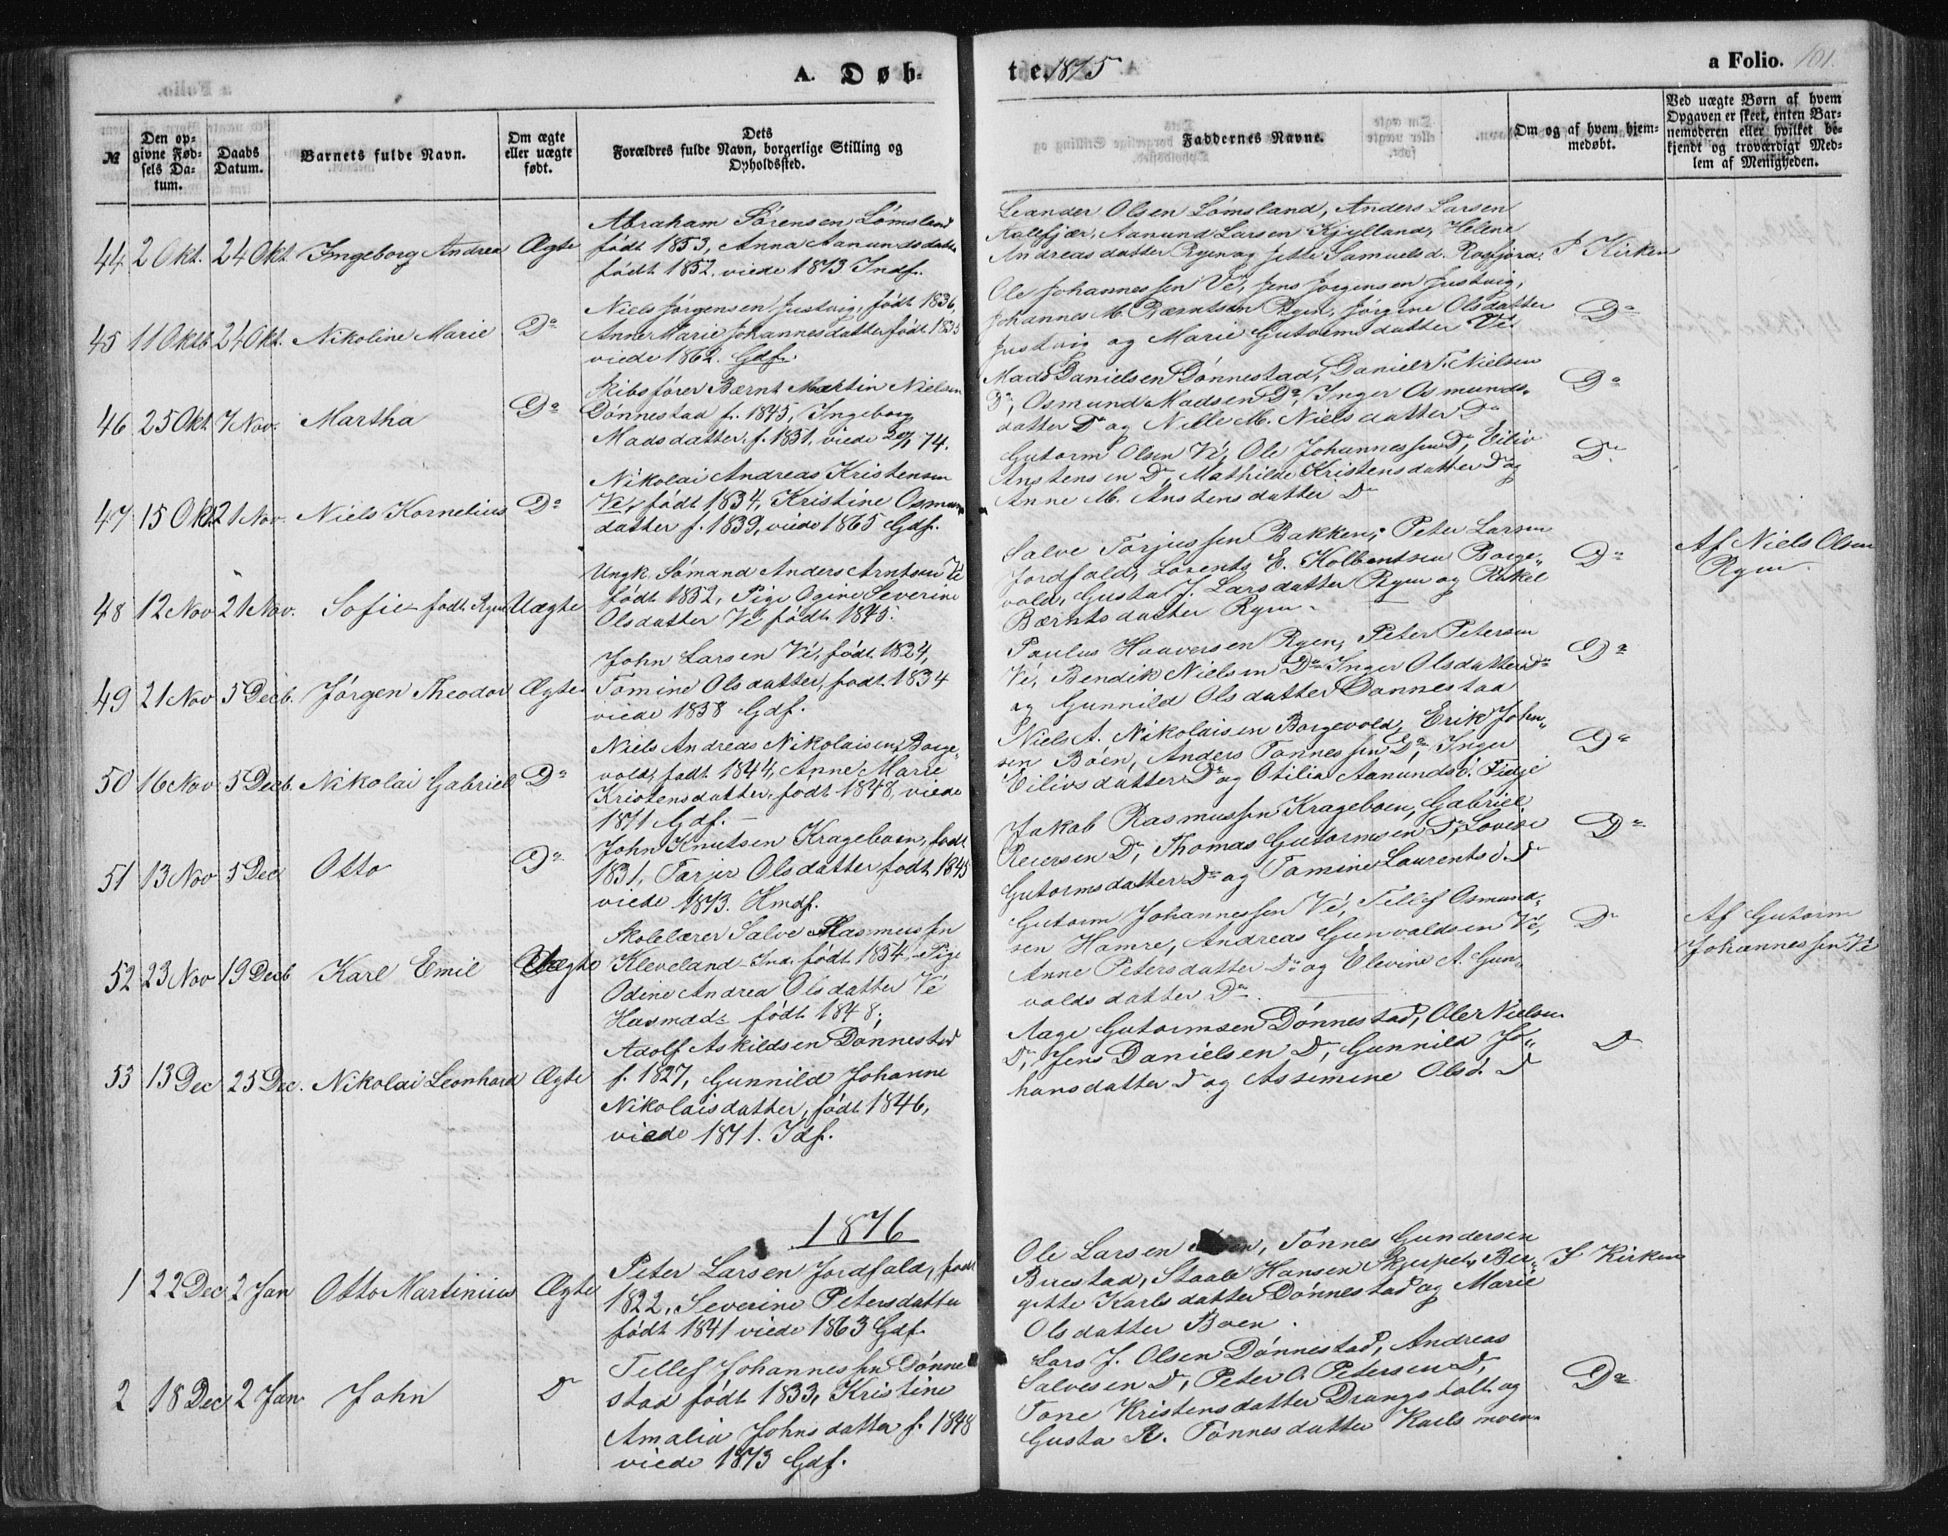 A. Døb-
te. 1875
a Folio. 101.
№
Den opgivne Fødsels Datum.
Daabs Datum.
Barnets fulde Navn.
Om ægte eller uægte født.
Dets Forældres fulde Navn, borgerlige Stilling og Opholdssted.
Faddernes Navne.
Om og af hvem hjemmedøbt.
Ved uægte Børn af hvem Opgaven er skeet, enten Barnemoderen eller hvilket bekjendt og troværdigt Medlem af Menigheden.
44 2 Okt. 24 Okt. Ingeborg Andrea Ægte
Abraham Sörensen Lömsland
født 1853, Anna Aanundsdatter
født 1852. viede 1873 Indf.
Leander Olsen Lömsland, Anders Larsen
Aanund Larsen Kjylland, Helene
Andreasdatter Ryen og Jette Samuelsd. Rosfjord.
I Kirken
45 11 Oktb 24 Okt. Nikoline Marie Do
Niels Jörgensen Justvig, født 1836,
Anne Marie Johannesdatter født 1835
viede 1862. Gdf.
Ole Johannessen Vé, Jens Jörgensen Justvig,
Johannes M. Bærntsen Ryen, Jörgine Olsdatter
Justvig og Marie Gutormsdatter Vé
Do
46 25 Okt 7 Nov. Martha Do
Skibsfører Bærnt Martin Nielsen
Dönnestad f. 1845, Ingeborg
Madsdatter f. 1851, viede 20/7 74.
Mads Danielsen Dönnestad, Daniel T. Nielsen
Do, Osmund Madsen Do, Inger Osmunds-
datter Do og Nille M. Nielsdatter Do
Do
47 15 Okt 21 Nov. Niels Kornelius Do
Nikolai Andreas Kristensen
Vé, født 1834, Kristine Osmun
datter f. 1839, viede 1865 Gdf.
Gutorm Olsen Vé, Ole Johannessen Do, Eiliv
Anstensen Do, Mathilde Kristensdatter Do og
Anne M. Anstensdatter Do
Do
48 12 Nov 21 Nov. Sofie født Ryen Uægte
Ungk. Sömand Anders Arntsen Vé
født 1852, Pige Ogine Severine
Olsdatter Vé født 1845.
Salve Torjussen Bakken, Peter Larsen
Jordfald, Lorents E. Kolbentsen Borge-
vold, Gusta J. Larsdatter Ryen og Rakel
Bærntsdatter Ryen.
Do
Af Niels Olsen
Ryen.
49 21 Nov 5 Decb. Jørgen Theodor Ægte
John Larsen Vé, født 1824,
Tomine Olsdatter, født 1834
viede 1858 Gdf.
Paulus Haaversen Ryen, Peter Petersen
Vé, Bendik Nielsen Do Inger Olsdatter Do
og Gunnild Olsdatter Dönnestad
Do
50 16 Nov 5 Decb. Nikolai Gabriel Do
Niels Andreas Nikolaisen Borge-
vold, født 1844, Anne Marie
Kristensdatter, født 1848, viede
1871 Gdf.
Niels A. Nikolaisen Borgevold, Erik John-
sen Böen, Anders Tönnessen Do, Inger
Eilivsdatter Do og Otilia Aanundsd. Fidje
Do
51 13 Nov 5 Dec Otto Do
John Knutsen Krageboen, født
1831, Tarjer Olsdatter født 1845
viede 1873. Hmdf.
Jakob Rasmussen Krageboen, Gabriel
Reiersen Do, Thomas Gutormsen Do, Lovise
Gutormsdatter Do og Tomine Laurentsd. Do
Do
52 23 Nov 19 Decb Karl Emil Uægte
Skolelærer Salve Rasmussen
Kleveland født 1854, Pige
Odine Andrea Olsdatter Vé
født 1848,
Gutorm Johannessen Vé, Tellef Osmund-
sen Hamre, Andreas Gunvaldsen Vé,
Anne Petersdatter Do og Elevine A. Gun-
valdsdatter Do.
Do
Af Gutorm
Johannessen Vé
53 13 Dec 25 Dec. Nikolai Leonhard Ægte
Adolf Askildsen Dönnestad
f. 1827, Gunnild Johanne
Nikolaisdatter, født 1846,
viede 1871. Idf.
Aage Gutormsen Dönnestad, Ole Nielsen
Do, Jens Danielsen Do, Gunnild Jo-
hansdatter Do og Assimine Olsd. Do
Do
1876
1 22 Dec 2 Jan Otto Martinius Ægte
Peter Larsen Jordfald, født
1822, Severine Petersdatter
født 1841 viede 1863 Gdf.
Ole Larsen Tönnes Gundersen
Buestad, Staale Hansen Skjeupet, Ber-
gitte Karlsdatter Dönnestad og Marie
Olsdatter Boen.
I Kirken
2 18 Dec 2 Jan John Do
Tellef Johannessen Dönne
stad født 1833, Kristine
Amalia Johnsdatter f. 1848
viede 1873 Gdf.
Lars J. Olsen Dönnestad, Andreas
Salvesen Do, Peter O. Petersen Do,
Tone Kristensdatter Drangsholt og
Gusta R. Tönnesdatter Karlsmoen
Do